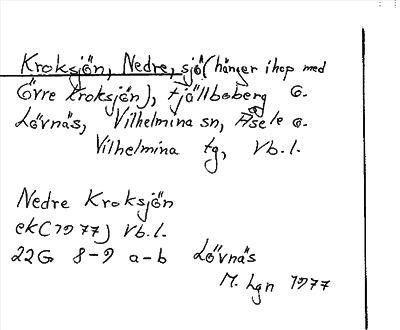 Kroksjön, Nedre, sjö (hänger ihop med
Övre Kroksjön), Fjällboberg o.
Lövnäs, Vilhelmina sn, Åsele o.
Vilhelmina tg, Vb. l.
Nedre Kroksjön
ek (1977) Vb. l.
22G 8-9 a-b Lövnäs
M. Lgn 1977